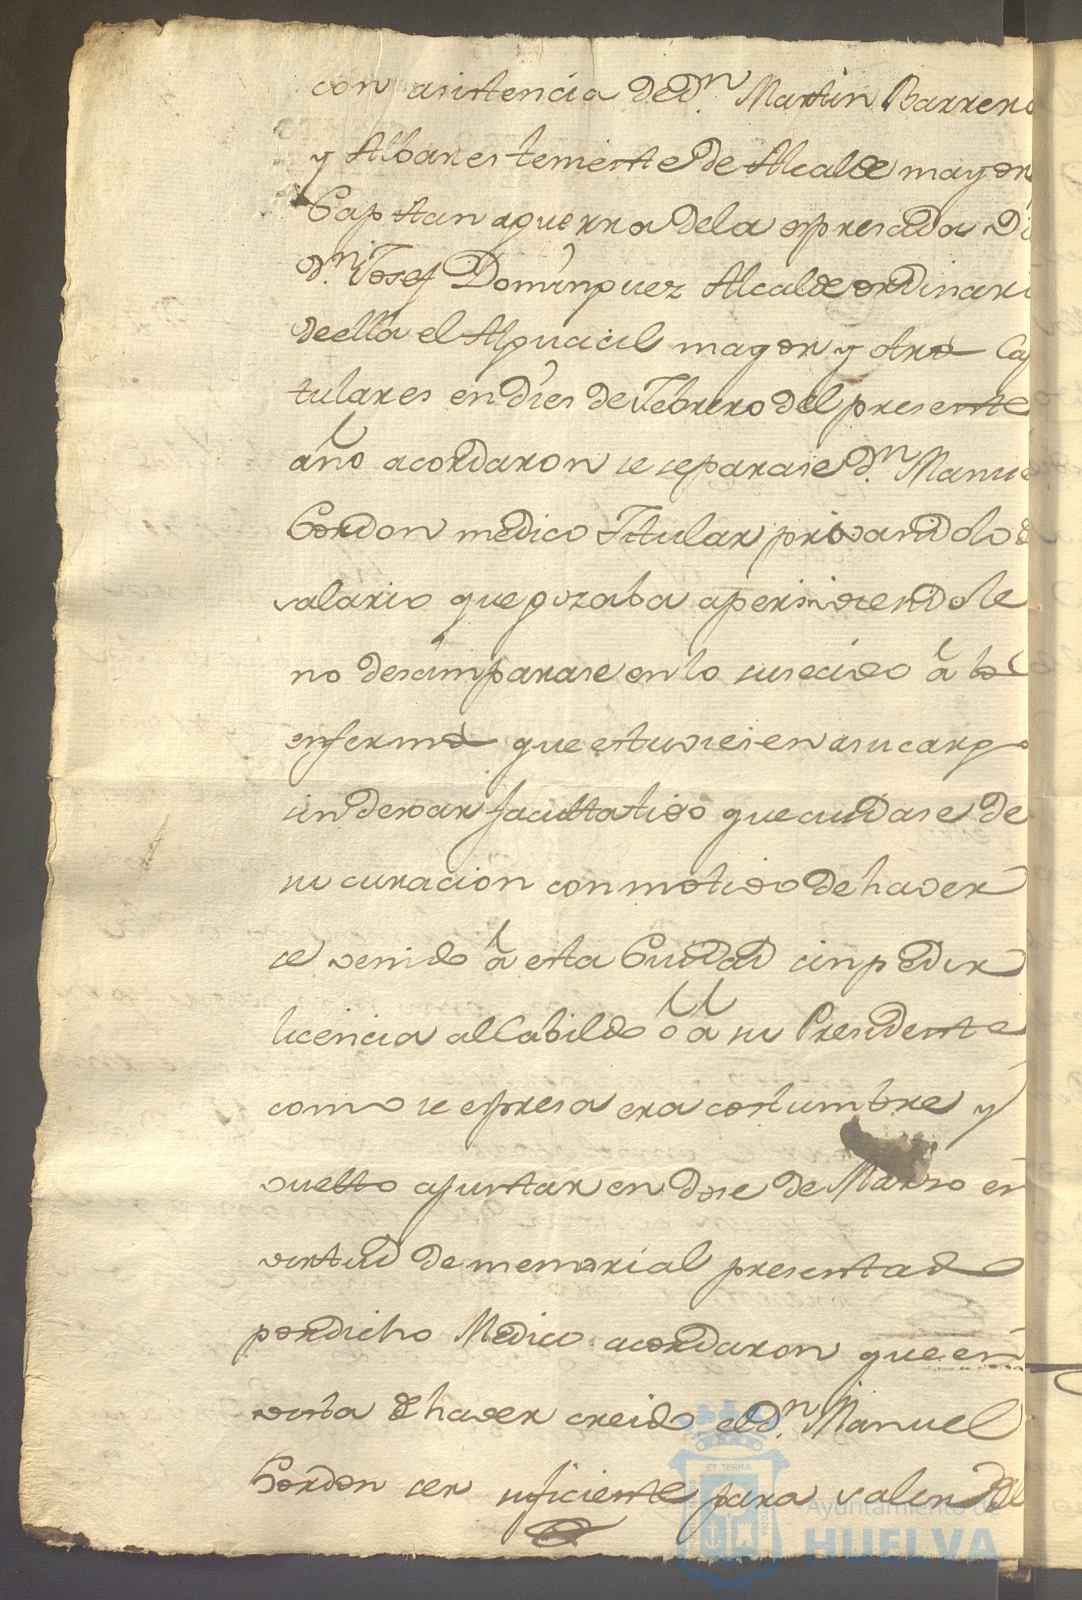 con asistencia de D.n Martin Barrero
y Albares teniente de Alcalde mayor
Capitan aguerra dela espresada
D.n Josef Dominguez Alcalde ordinari
deella el Alguacil mayor y otros Ca
tulares en dies de Febrero del presente
año acordaron se separase D.n Manue
Gordon medico Titular privandolo
salario que gozaba aperciviendole
no desamparase en lo susecivo à los
enfermos que estuviesen asu cargo
sin dexar facultativo que cuidase de
su curacion con motivo de haver
se venido à esta Ciudad sin pedir
licencia al Cabildo ò à su Presidente
como se espresa era costumbre y
vuelto ajuntar en dose de Marzo en
virtud de memorial presentado
pordicho Medico acordaron que en
vista de haver creido el D.n Manuel
Gordon ser suficiente para salir del
ET TERRÆ
Ayuntamiento de
HUELVA